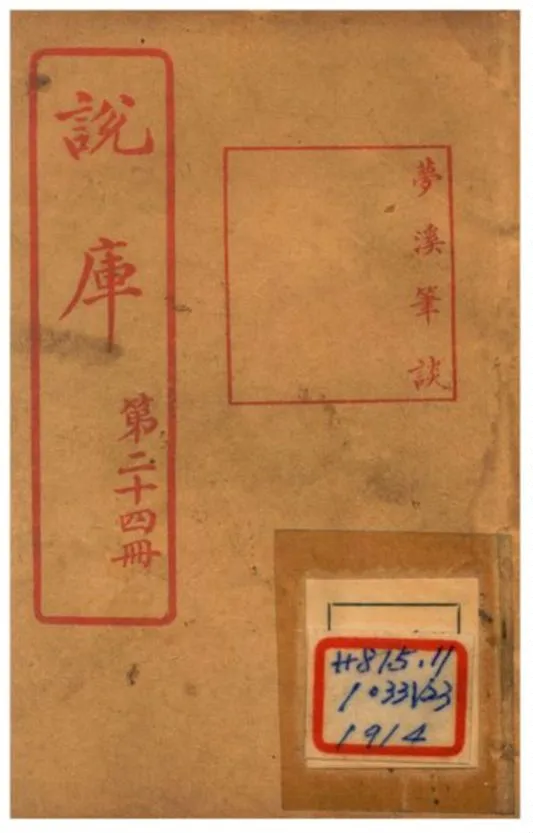 夢溪筆談
說庫
第二十四冊
H815.11
1033V23
1914